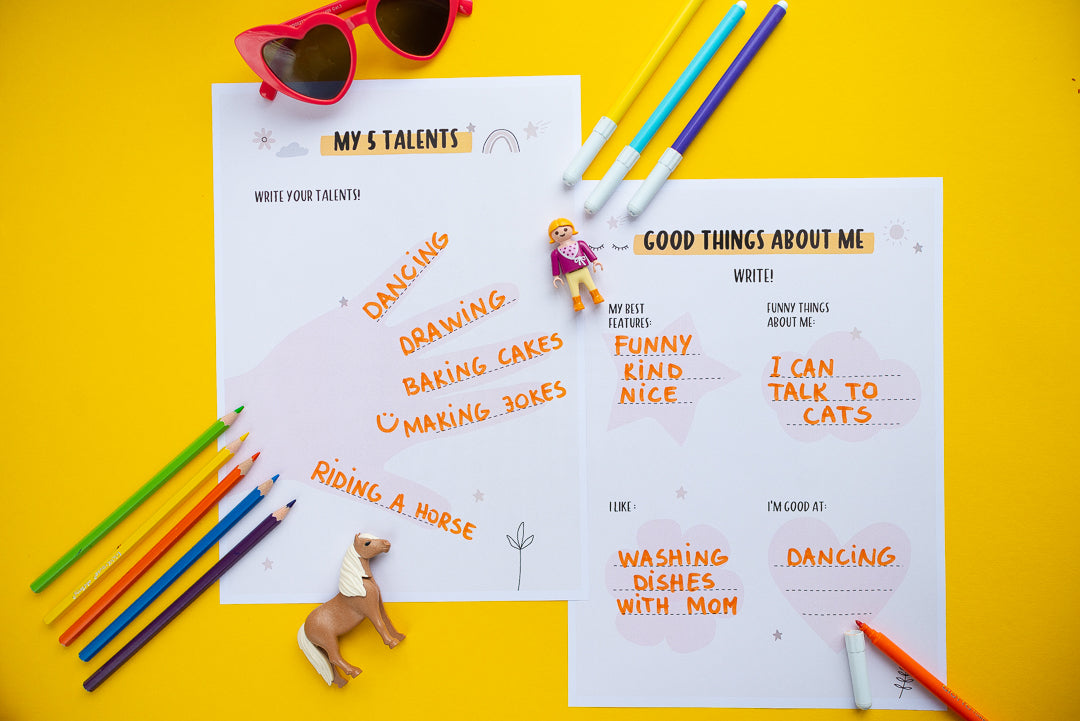 MY 5 TALENTS
WRITE YOUR TALENTS!
DANCING
DRAWING
BAKING CAKES
MAKING JOKES
RIDING A HORSE
GOOD THINGS ABOUT ME
WRITE!
MY BEST
FEATURES:
FUNNY
KIND
NICE
FUNNY THINGS
ABOUT ME:
I CAN
TALK TO
CATS
I LIKE :
WASHING
DISHES
WITH MOM
I'M GOOD AT:
DANCING